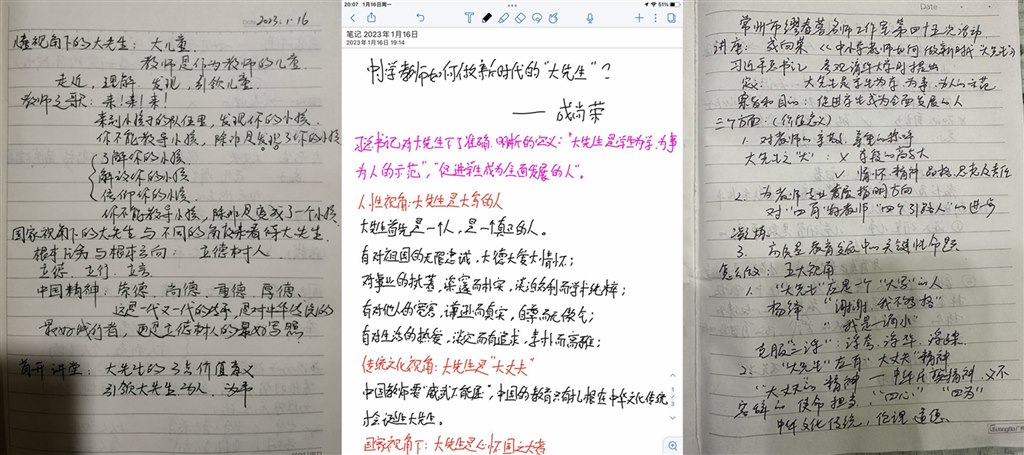 2023.1.16
童视角下的大先生：大儿童.
教师是作为教师的儿童.
走近，理解，发现，引领儿童.
教师之歌：来！来！来！
来到小孩子的队伍里，发现你的小孩.
你不能教导小孩，除非是发现了你的小孩
了解你的小孩.
解放你的小孩.
信仰你的小孩.
你不能教导小孩，除非是变成了一个小孩
国家视角下的大先生与不同的角度来看待大先生.
根本任务与根本方向：立德树人
立德、立行、立言
中国精神：崇德、尚德、重德、厚德、
这是一代又一代的
最好践行者，更是立德树人的最好写照
首开讲堂：大先生的三点价值意义
引领大先生为人
20:07 1月16日周一
51%
笔记 2023年1月16日
2023年1月16日 19:14
中小学教师如何做新时代的“大先生”？
——成尚荣
习总书记对大先生下了准确、明晰的定义：“大先生是学生为学、为事
为人的示范”，“促进学生成为全面发展的人”。
人性视角：大先生是大写的人
大先生首先是一个人，是一个真正的人。
有对祖国的无限忠诚，大德大爱大情怀；
对事业的执著，深邃而朴实，淡泊名利而守并纯粹；
有对他人的宽容，谦逊而真实，自尊而无傲气；
有对生活的热爱，淡定而有追求，素朴而高雅；
传统文化视角：大先生是“大丈夫”
中国教师要“威武不能屈”，中国的教育只有扎根在中华文化传统
才会诞生大先生。
国家视角下：大先生是心怀国之大者
1/3
Date
常州市缪春蓉名师工作室第四十五次活动
讲座：成尚荣《中小学教师如何做新时代大先生》
习近平总书记 考察清华大学时提出
定义：大先生是学生为学、为事、为人的示范
宗旨和目的：促进学生成为全面发展的人
三个方面：（价值意义）
1. 对教师的尊敬、尊重的称呼
大先生之“大”：× 身段的高与大
✓ 情怀、精神、品格、忠克及责任
2. 为教师专业发展指明方向
对“四有”好教师“四个引路人”的进步
凝炼.
3.
怎么做：五大视角
1. “大先生”应是一个“大写”的人
杨绛 “谢谢，我不够格”
“我是一滴水”
克服“三浮”：浮夸、浮华、浮躁.
2. “大先生”应有“大丈夫”精神
“大丈夫”的精神 — 中华民族精神，义不
容辞的使命担当，“四心” “四为”
中华文化传统，伦理道德.
GuangBo